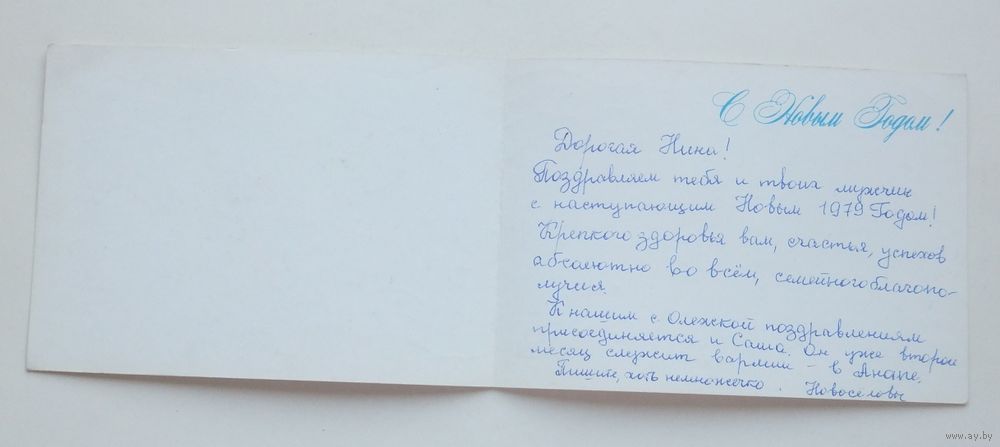 С Новым Годом!
Дорогая Нина!
Поздравляем тебя и твоих мужчин
с наступающим Новым 1979 Годом!
Крепкого здоровья вам, счастья, успехов
абсолютно во всём, семейного благопо-
лучия.
К нашим с Олежкой поздравлениям
присоединяется и Саша. Он уже второй
месяц служит в армии – в Анапе.
Пишите, хоть немножечко. Новоселовы
www.ay.by